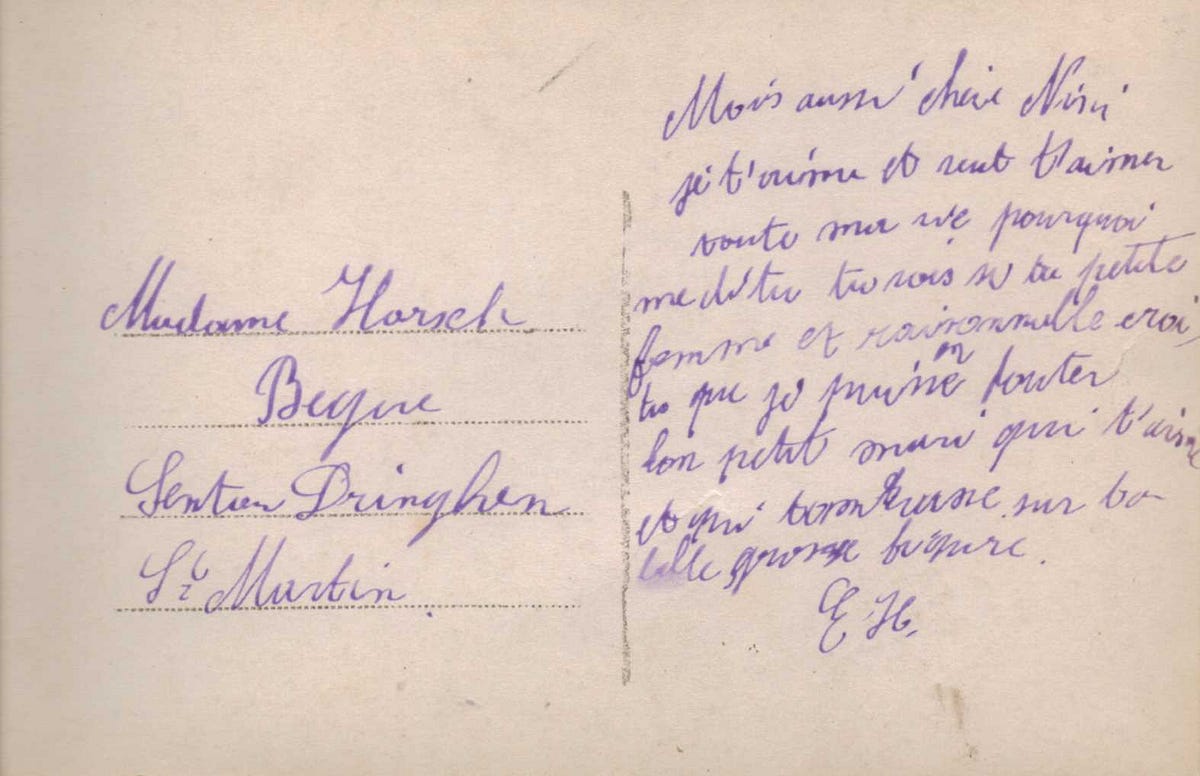 Madame Horsch
Begue
Sentier Dringhen
St Martin
Mois aussi chère Nini
je t'aime et veut t'aimer
toute ma vie pourquoi
me dit tu tu vois si ta petite
femme et raisonnable croi
tu que je puisse en douter
ton petit mari qui t'aime
et qui t'embrasse sur ta
belle grosse figure.
E H.